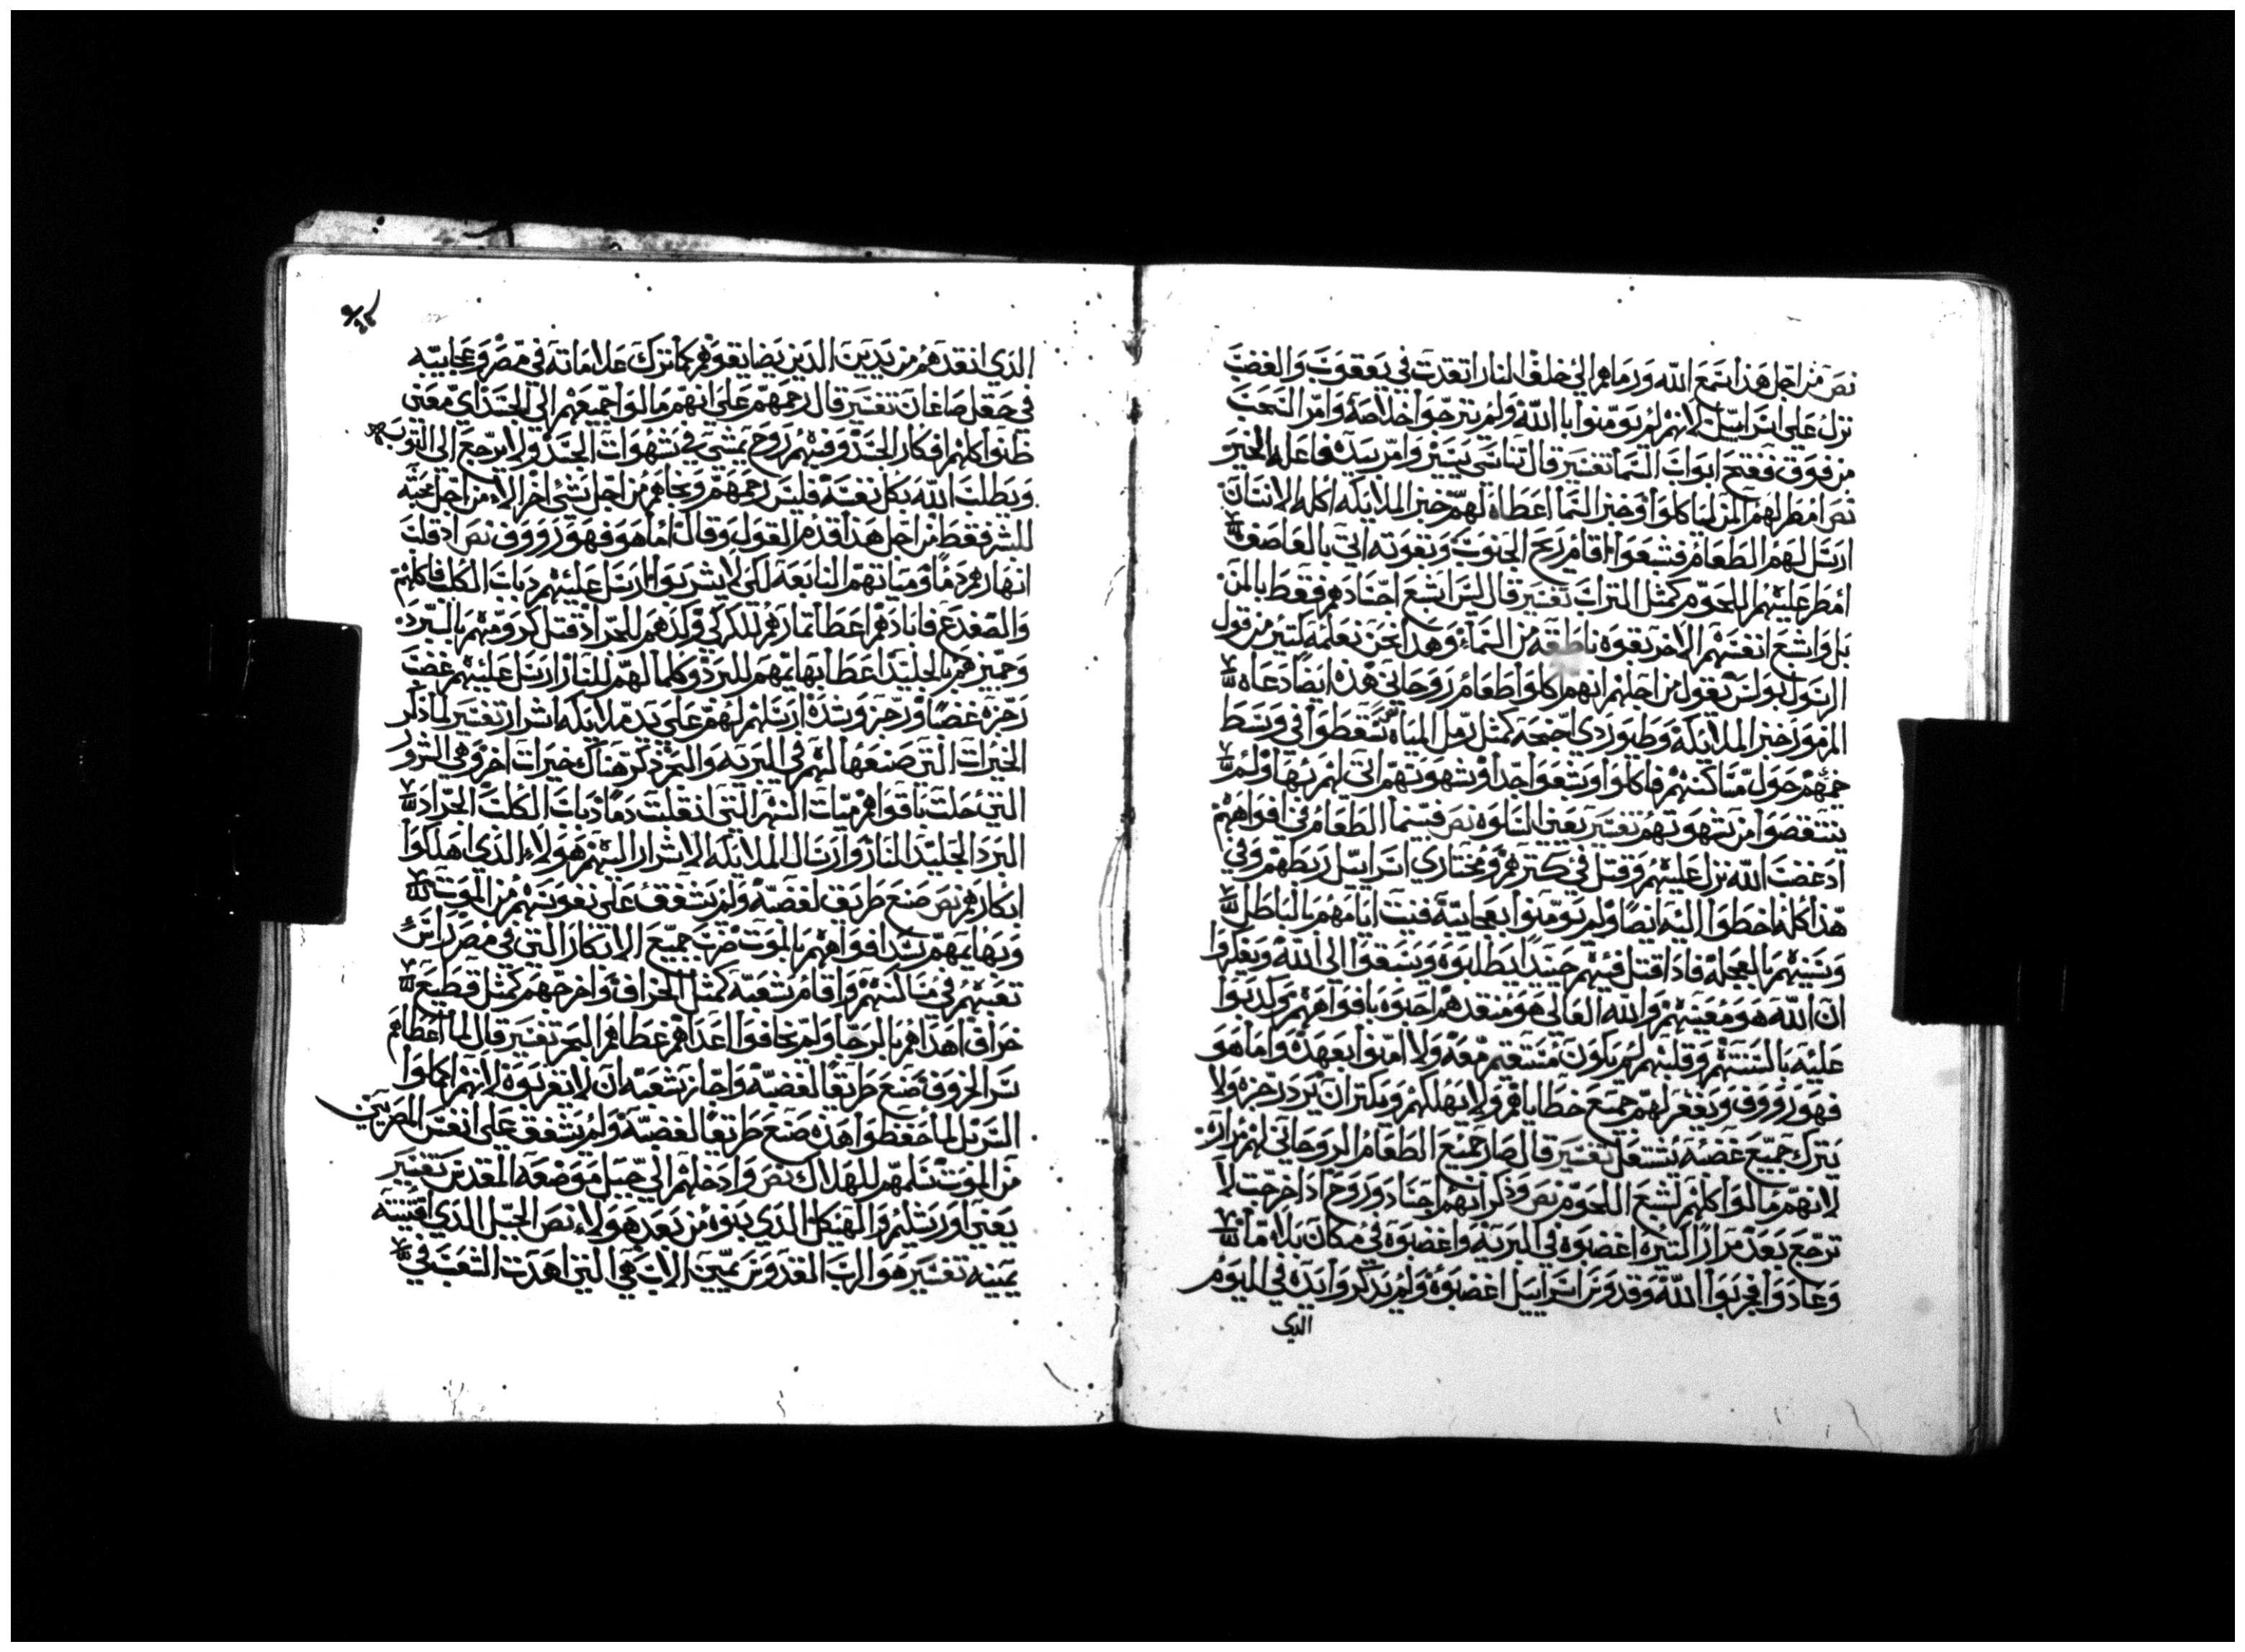 نص من اجل هذا سمع الله ورماهم الي خلف النار اتقدت في يعقوب والغضب
نزل علي اسراييل لانهم لم يومنوا بالله ولم يترجوا خلاصه وامر السحب
من فوق ففتح ابواب السما تفسير قال تناسي يسير وامر بيده فاعله الخير
نص امطر لهم المن لياكلوا وخبز السما اعطاه لهم خبز الملايكه اكله الانسان
ارسل لهم الطعام فشبعوا اقام ريح الجنوب وبقوته اتي بالعاصف
امطر عليهم اللحوم كمثل التراب تفسير قال ليس اشبع اجسادهم فقط بالمن
بل واشبع انفسهم الاخر بقوه ناطقه من السماء وهذا نحن نعلمه لتير من قول
الرسول بولس يقول من اجلهم انهم كلوا طعام روحاني هذه ايضا دعاه
المزمور خبز الملايكه وطيور دي اجنحه كمثل رمل المياه سقطوا في وسط
حول مساكنهم فاكلوا وشبعوا جدا وشهوتهم اتي لهم بها ولم
ينتقصوا من شهوتهم تفسير يعني السلوه نص فبينما الطعام في افواههم
اد غضب الله نزل عليهم وقتل في كترهم ومختاري اسراييل ربطهم وفي
هذا كله اخطوا اليه ايضا ولم يومنوا بعجايبه فنيت ايامهم بالباطل
وسنيهم بالعجله فادا قتل فيهم حينيدا يطلبوه ويسبقوا الي الله ويفكروا
ان الله هو معينهم والله العالي هو منقدهم احبوه بافواههم وكدبوا
عليه بالسنتهم وقلبهم لم يكون مستقيم معه ولا امنوا بعهده واما هو
فهو رووف ويغفر لهم جميع خطاياهم ولا يهلكهم ويكتر ان يرد رجزه ولا
يترك جميع غضبه يشتعل تفسير قال صار جميع الطعام الروحاني لهم مراره
لانهم مالوا كلهم لشبع اللحوم نص وذكر انهم اجساد وروح ادا خرجت لا
ترجع بعد مرارا كتيره اغضبوه في البريه واغضبوه في مكان بلا ما
وعادوا فجربوا الله وقدوس اسراييل اغضبوه ولم يدكروا يده في اليوم
الدي
الدي انقدهم من يديين الدين يضايقوهم كما ترك علاماته في مصر وعجايبه
في حقل صاغان تفسير قال رحمهم علي انهم مالوا جميعهم الي الجسد اي معني
ظنوا كلهم افكار الجسد وفيهم روح يمشي في شهوات الجسد ولا يرجع الي التوبه
ويطلب الله بكل نفسه فليس رحمهم ونجاهم من اجل شي اخر الا من اجل محبته
للبشر فقط من اجل هذا قدم القول وقال اما هو فهو رووف نص اد قلب
انهارهم دما ومياههم النابعه لكي لا يشربوا ارسل عليهم دباب الكلب فاكلهم
والضفدع فابادهم اعطا تمارهم للكركي وكدهم للجراد قتل كرومهم بالبرد
وجميزهم بالجليد اعطا بهايمهم للبرد وكلما لهم للنار ارسل عليهم غضب
رجزه غضبا ورجز وشده ارسلهم لهم علي يد ملايكه اشرار تفسير لما ذكر
الخيرات التي صنعها لهم في البريه والتمرد ذكر هناك خيرات اخر وهي الشرور
التي حلت باقواهم مياه النهر التي انقلبت دما دباب الكلب الجراد
البرد الجليد النار وارسال الملايكه الاشرار اليهم هولاء الدي اهلكوا
ابكارهم نص صنع طريق لغضبه ولم يشفق علي نفوسهم من الموت
وبهايمهم سد افواههم بالموت ضرب جميع الابكار التي في مصر راس
تعبهم في مساكنهم واقام شعبه كمثل الخراف واخرجهم كمثل قطيع
خراف اهداهم بالرجا ولم يخافوا اعداهم غطاهم البحر تفسير قال لما اعطاهم
سر الخروف صنع طريقا لغضبه واجاز شعبه ان لا يقربوه لانهم اكلوا
السر بل لما حفظوا هذه صنع طريقا لغضبه ولم يشفق علي انفس المصريين
من الموت سلمهم للهلاك نص وادخلهم الي جبل موضعه المقدس تفسير
يعني اورشليم والهيكل الدي بنوه من بعد هولاء نص الجبل الدي اقتنته
يمينه تفسير هو الرب القدوس يمين الاب هي التي اهدت الشعب في